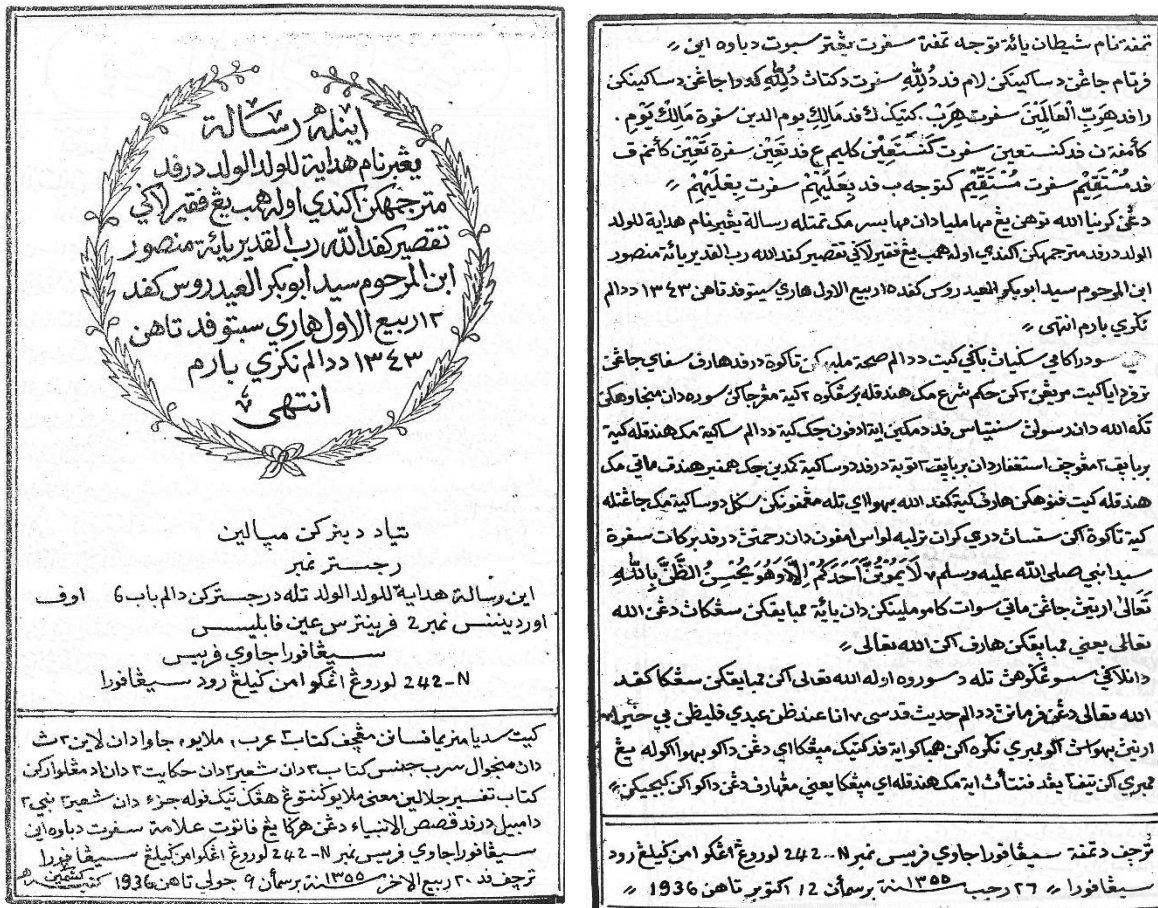 اينله رسالة
يڠبرنام هداية للولد الولد درفد
مترجمهكن اكندي اوله همب يڠ فقير لاڬي
تقصير كفد الله رب القدير يائة منصور
ابن المرحوم سيد ابوبكر العيدروس كفد
١٢ ربيع الاول هاري سبتو فد تاهن
١٣٤٣ ددالم نكري بارم
انتهى
تياد دبنركن ميالين
رجستر نمبر
اين رسالة هداية للولد الولد تله درجستركن دالم باب 6 اوف
اورديننس نمبر 2 فرينترس عين فابليسس
سيڠافورا جاوي فريس
242-N لوروڠ اڠكو امن كيلڠ رود سيڠافورا
كيت سديا منريما فسانن مڠچف كتاب٢ عرب، ملايو، جاوا دان لاين٢ ث
دان منجوال سرب جنيس كتاب٢ دان شعير٢ دان حكاية٢ دان اد مڠلواركن
كتاب تفسير جلالين معنى ملايو كنتوڠ هڠݢ تيݢ فوله جزء دان شعير٢ نبي٢
دامبيل درفد قصص الانبياء دڠن هرݢا يڠ فاتوت علامة سفرت دباوه اين
سيڠافورا جاوي فريس نمبر 242-N لوروڠ اڠكو امن كيلڠ سيڠافورا
ترچف فد ٢٠ ربيع الاخر سنة ١٣٥٥ برسمأن ٩ جولي تاهن 1936
تمفة نام شيطان يائة توجه تمفة سفرت يڠترسبوت دباوه اين
فرتام جاڠن دساكيتكن لام فد دُلِلّٰهِ سفرت دكتاث دُلِلّٰهِ كدوا جاڠن دساكيتكن
را فد هِرَبِّ الْعَالَمِيْنَ سفرت هِرَبْ. كتيݢ ك فد مَالِكِ يوم الدين سفرة مَالِكِ يَوْمِ.
كأمفة ن فد كنستعين سفرت كَنَسْتَعِيْن كليم ع فد نَعِيْن سفرة نَعِيْن كأنم ف
فد مُسْتَقِيْم سفرت مُسْتَقِيْم كتوجه ب فد بِعَلَيْهِمْ سفرت بِعَلَيْهِمْ
دڠن كرنيا الله توهن يڠ مها مليا دان مها بسر مك تمتله رسالة يڠبرنام هداية للولد
الولد درفد مترجمهكن اكندي اوله همب يڠ فقير لاݢي تقصير كفد الله رب القدير يائة منصور
ابن المرحوم سيد ابوبكر العيدروس كفد ١٥ ربيع الاول هاري سبتو فد تاهن ١٣٤٣ ددالم
نكري بارم انتهى
سودراكامي سكيان باݢي كيت ددالم صحة مليبهكن تاكوة درفد هارف سفاي جاڠن
الله دان رسولن دمكين ايتاد فون جك كيت ددالم ساكية مك هندقله كيت
برباپق٢ مڠوچف استغفار دان برباپق٢ توبة درفد دوسا كيت كمدين جك همفير هندق ماتي مك
هندقله كيت فنوهكن هارف كيت كفد الله بهوا اي تله مڠمفونكن سكل دوسا كيت مك جاڠنله
كيت تاكوة اكن سسات دري كران ترلمه لواس امفون دان رحمتن درفد بركات سفرة
سيدا نبي صلى الله عليه وسلم لَا يَمُوْتَنَّ اَحَدُكُمْ اِلَّا وَهُوَ يُحْسِنُ الظَّنَّ بِاللّٰهِ
تَعَالٰى ارتين جاڠن ماتي سوات كامو ملينكن دان يائة ممبايقكن سڠكان دڠن الله
تعالى يعني ممبايقكن هارف اكن الله تعالى
دان لاݢي سسوڠݢوهن تله دسوروه اوله الله تعالى اكن ممبايقكن سڠكا كفد
الله تعالى دڠن فرمانن ددالم حديث قدسي انا عند ظن عبدي فليظن بي خيرا
ترچف دتمفة سيڠافورا جاوي فريس نمبر 242-N لوروڠ اڠكو امن كيلڠ رود
سيڠافورا ٢٦ رجب سنة ١٣٥٥ برسمأن 12 اكتوبر تاهن 1936